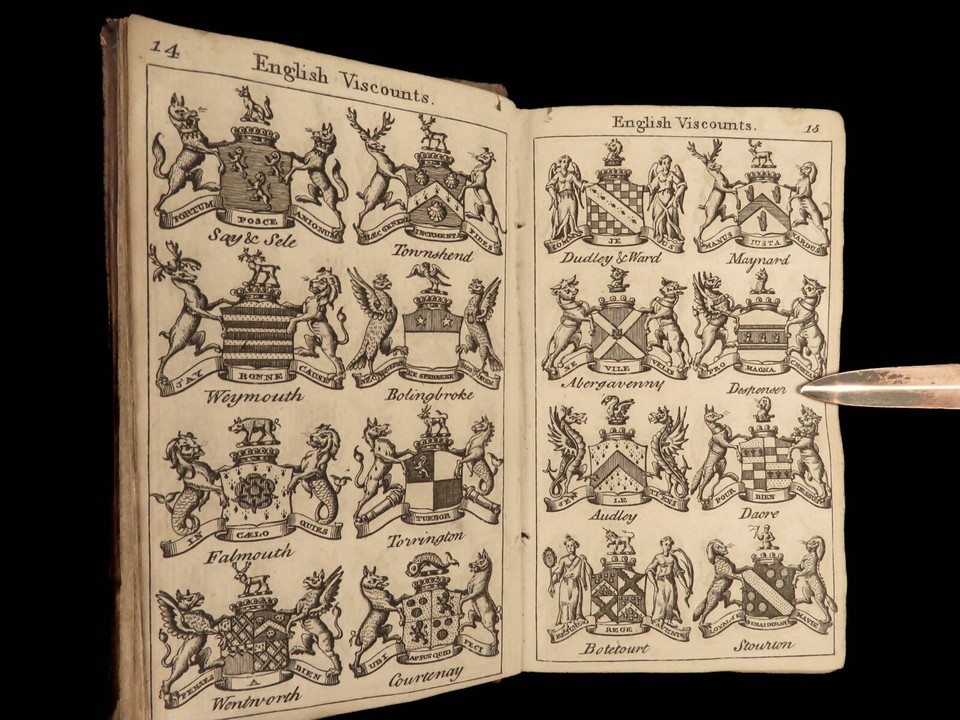 14
English Viscounts.
FORTUM POSCE ANIONUM
Say & Sele
HÆC GENERI INCREMENTA FIDES
Townshend
J'AY BONNE CAUSE
Weymouth
Bolingbroke
IN CÆLO QUIES
Falmouth
TUEBOR
Torrington
PENSES A BIEN
Wentworth
UBI LAPSUS QUID FECI
Courtenay
English Viscounts.
15
COME JE FUS
Dudley & Ward
MANUS JUSTA NARDUS
Maynard
NE VILE VELIS
Abergavenny
PRO MAGNA
Despenser
JE LE TIENS
Audley
POUR BIEN DESIRER
Dacre
REGE
Botetourt
LOYAL JE SERAI DURANT MA VIE
Stourton